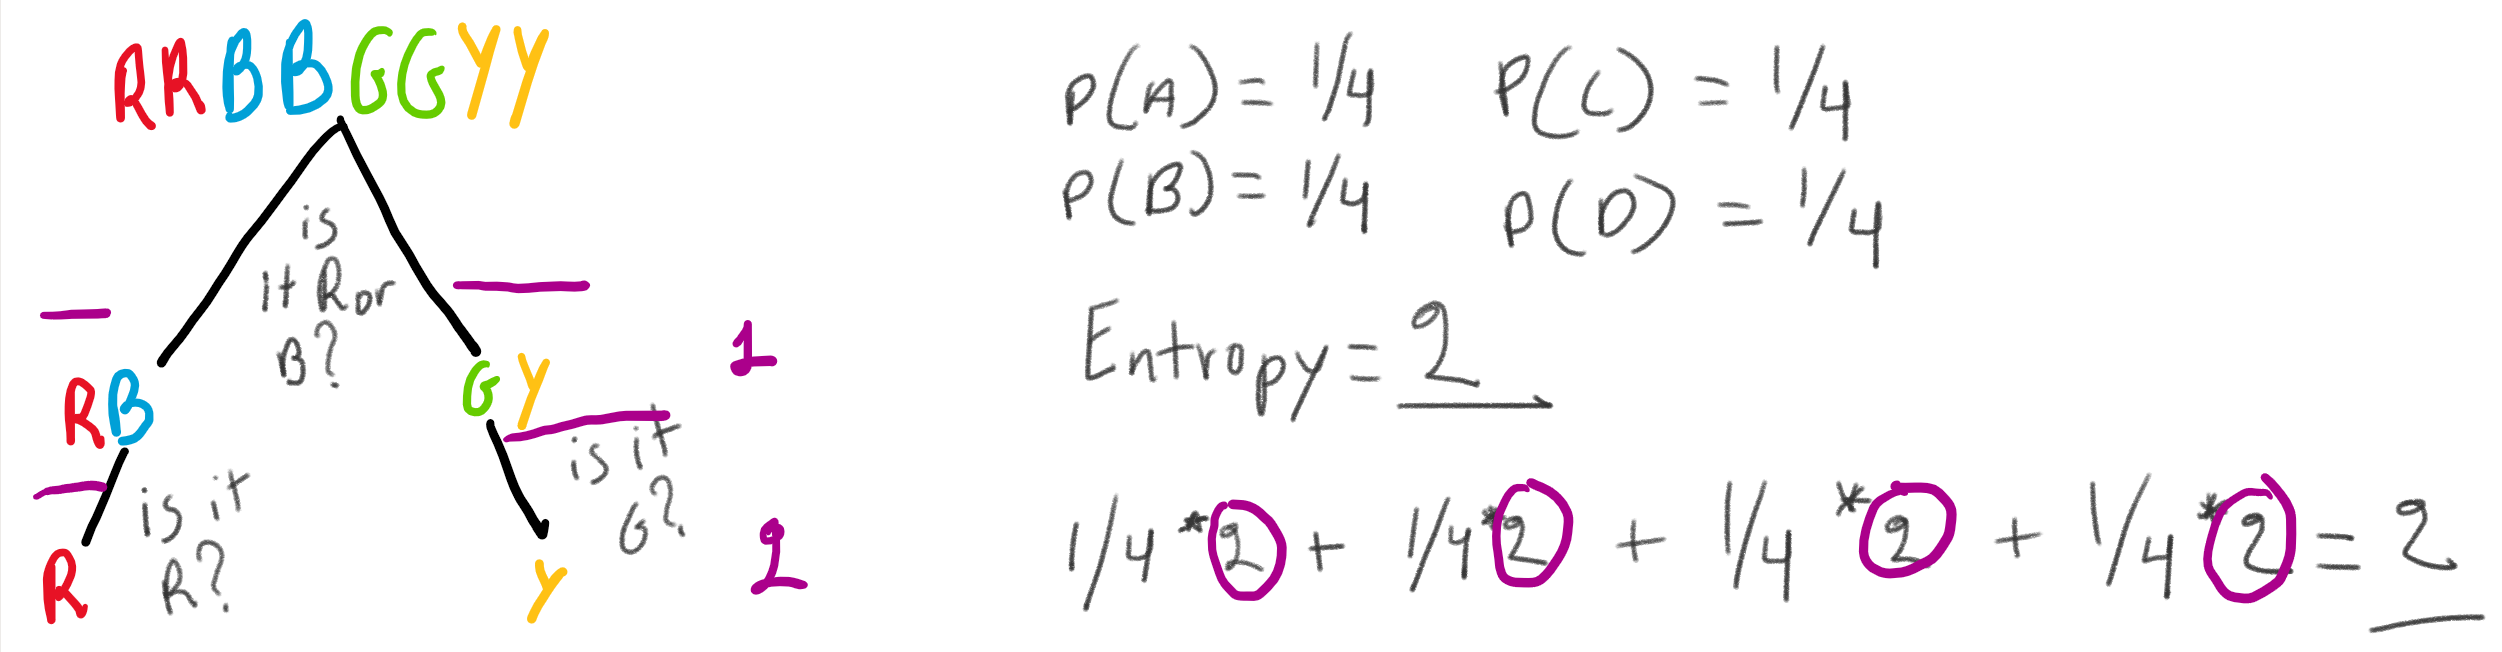 RRBBGGYY
is
it R or
B?
RB
GY
1
is it
R?
is it
G?
R
Y
2
P(A) = 1/4
P(C) = 1/4
P(B) = 1/4
P(D) = 1/4
Entropy = 2
1/4 * 2 + 1/4 * 2 + 1/4 * 2 + 1/4 * 2 = 2